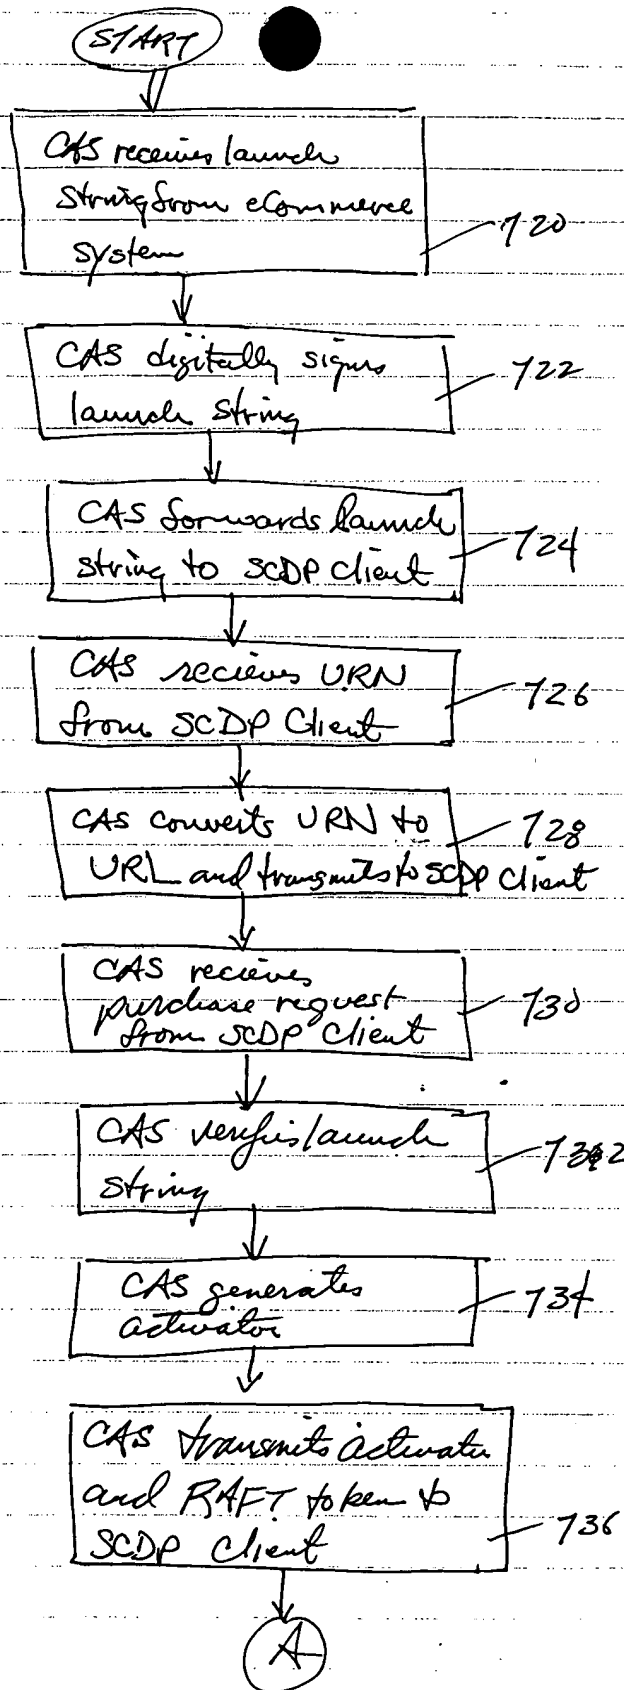 START
CAS receives launch
string from eCommerce
system
720
CAS digitally signs
launch string
722
CAS forwards launch
string to SCDP client
724
CAS recieves URN
from SCDP Client
726
CAS converts URN to
URL and transmits to SCDP Client
728
CAS recieves
purchase request
from SCDP Client
730
CAS verifies launch
string
732
CAS generates
activator
734
CAS transmits activator
and RAFT token to
SCDP Client
736
A